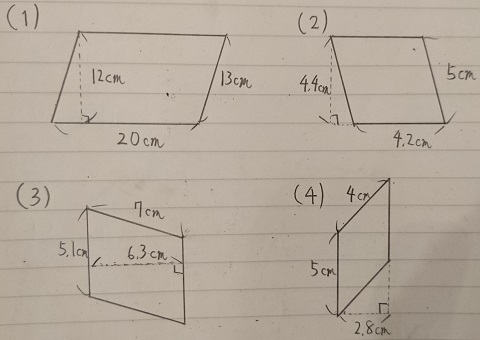 (1)
12cm
13cm
20cm
(2)
4.4cm
5cm
4.2cm
(3)
7cm
5.1cm
6.3cm
(4)
4cm
5cm
2.8cm